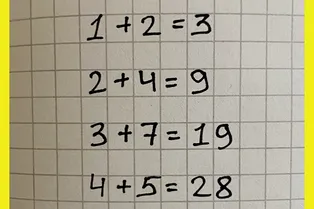 1 + 2 = 3
2 + 4 = 9
3 + 7 = 19
4 + 5 = 28